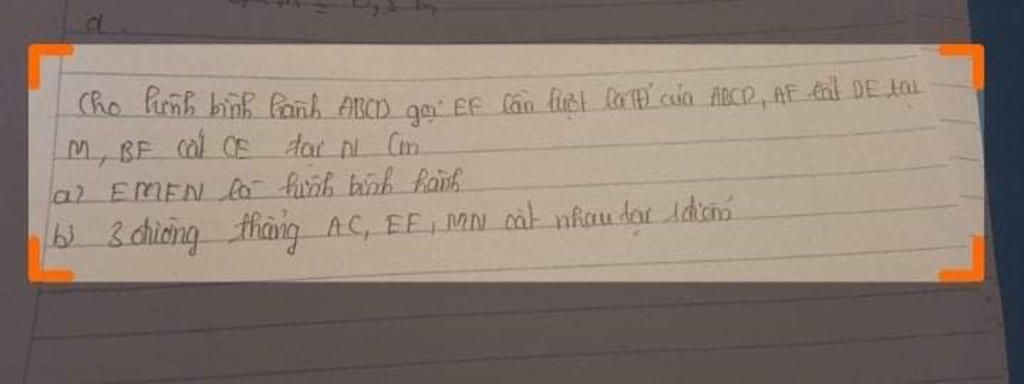 d.
Cho hình bình hành ABCD gọi EF lần lượt là TĐ của ABCD, AF cắt DE tại
M, BF cắt CE tại N Cm
a) EMFN là hình bình hành
b) 3 đường thẳng AC, EF, MN cắt nhau tại 1 điểm